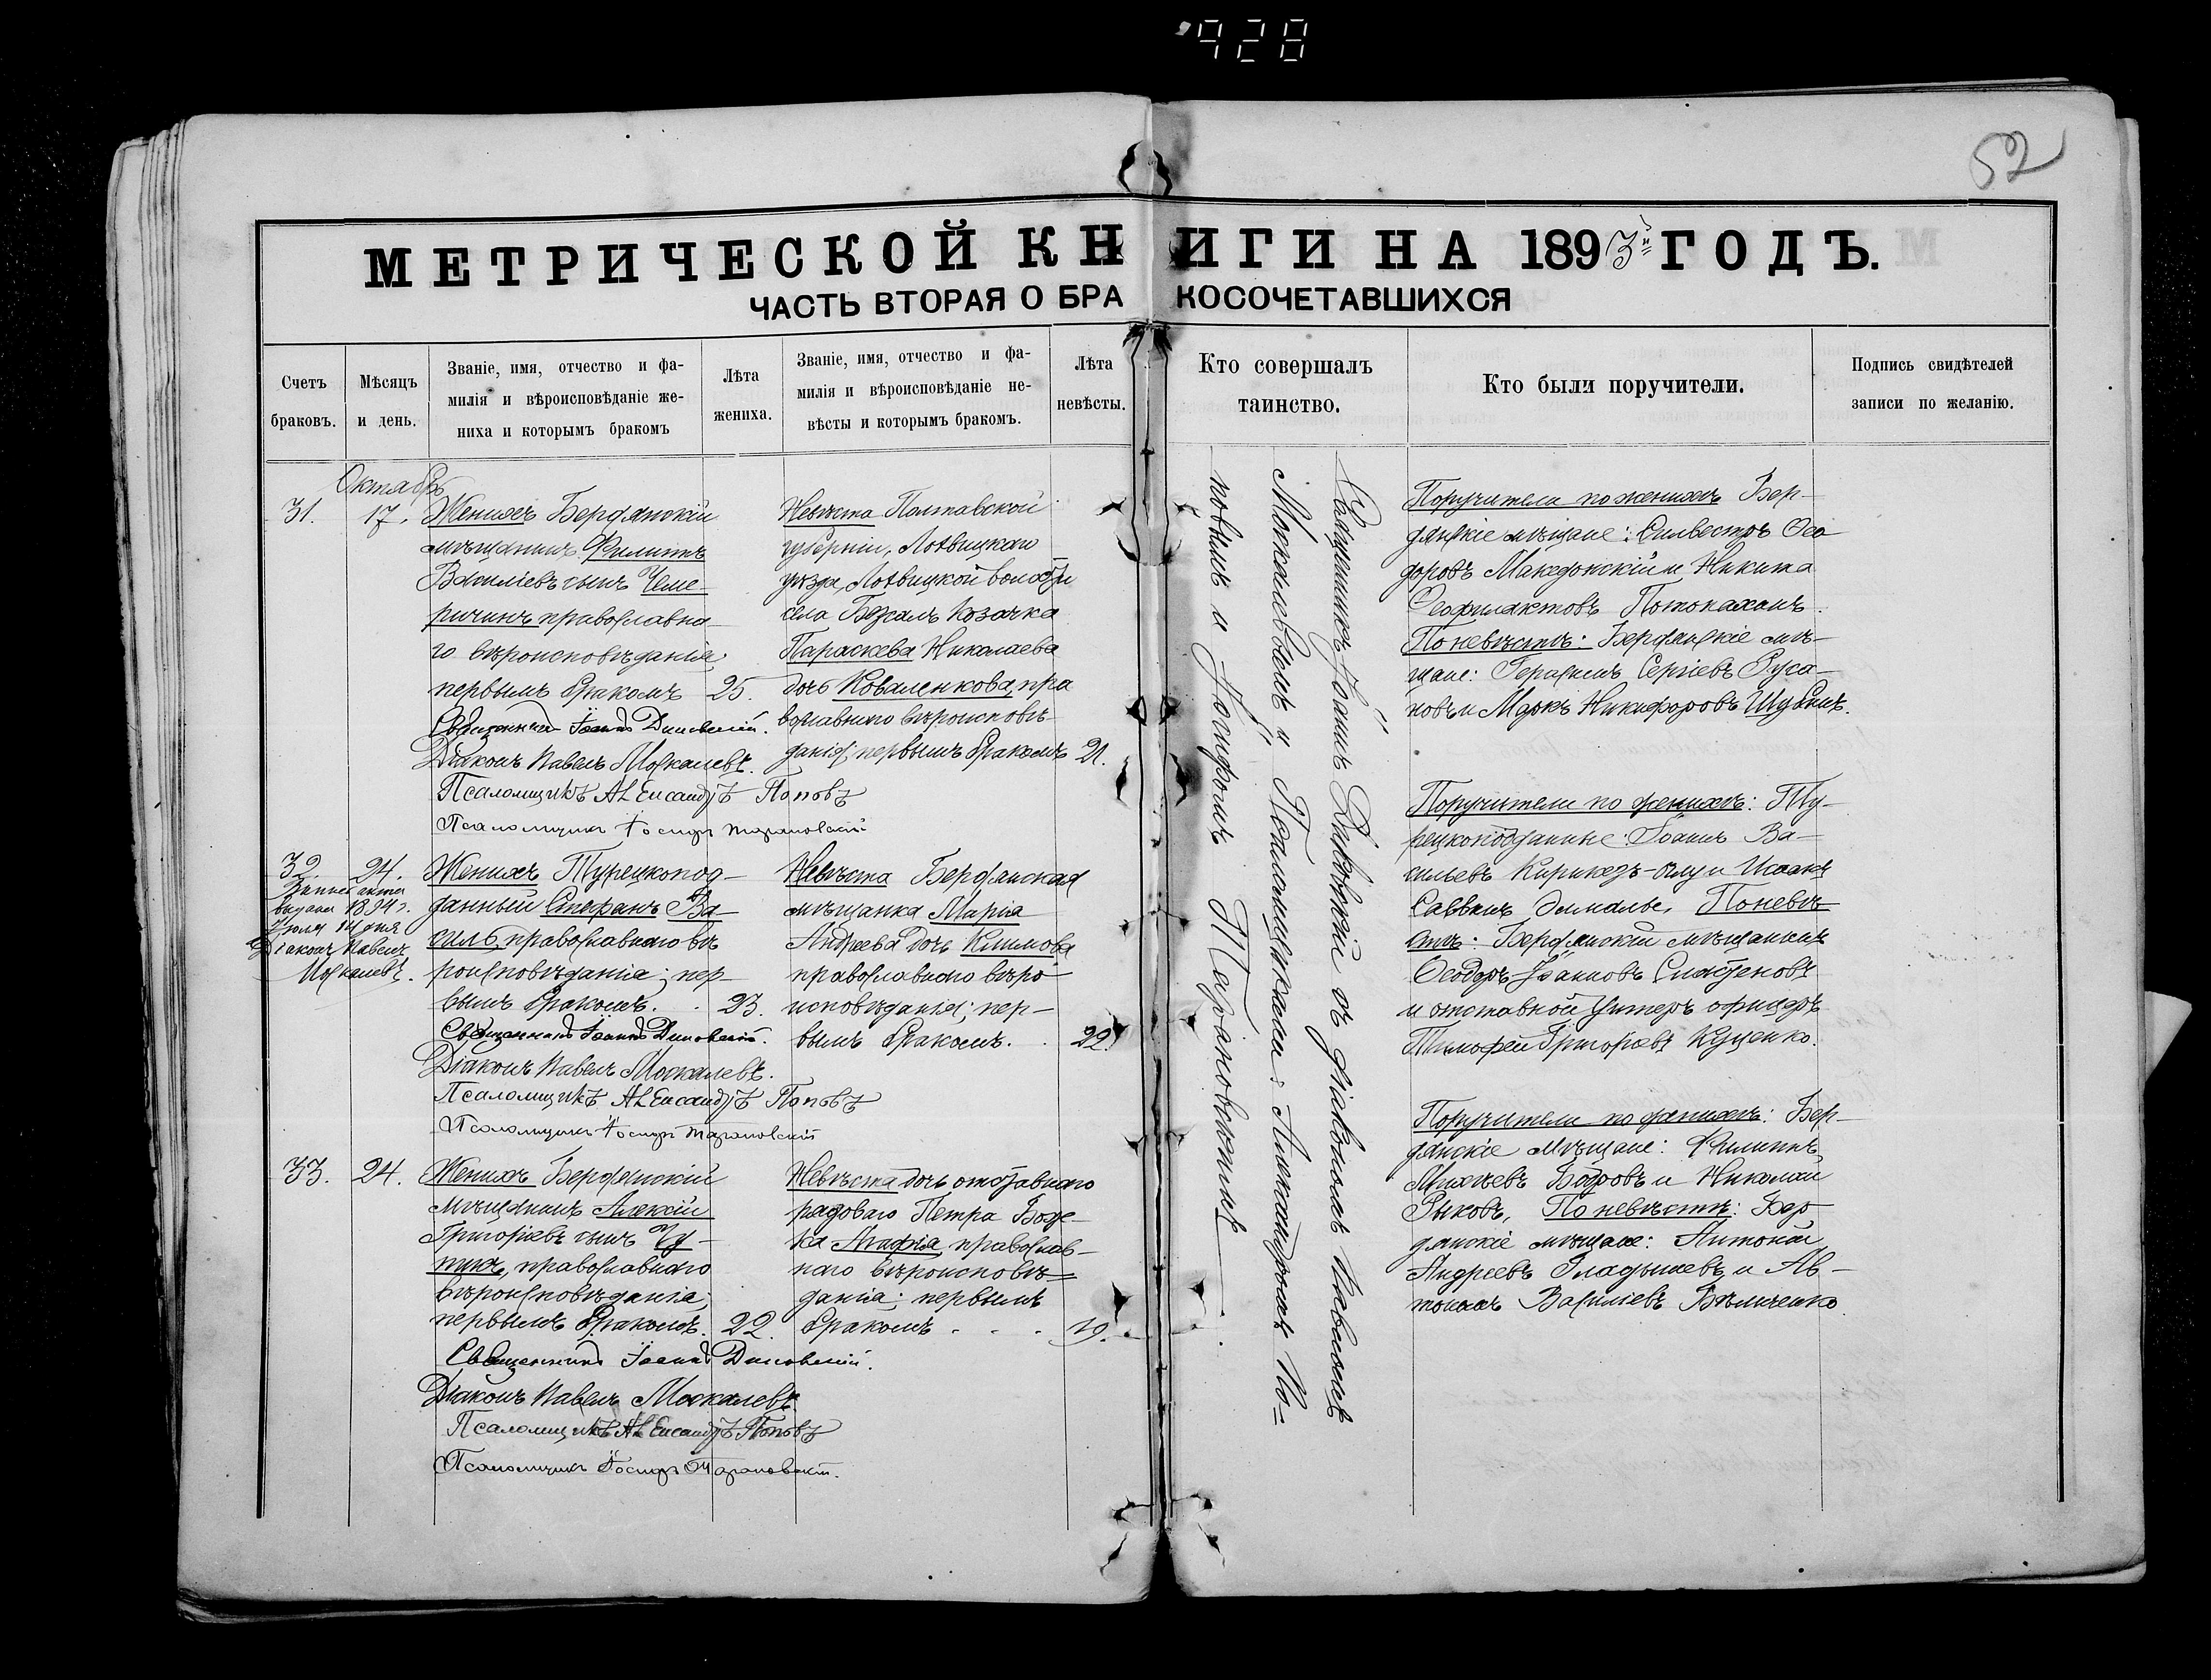 928
52
МЕТРИЧЕСКОЙ КНИГИ НА 1893й ГОДЪ.
ЧАСТЬ ВТОРАЯ О БРАКОСОЧЕТАВШИХСЯ
Счетъ браковъ.
Мѣсяцъ и день.
Званіе, имя, отчество и фа-
милія и вѣроисповѣданіе же-
ниха и которымъ бракомъ
Лѣта жениха.
Званіе, имя, отчество и фа-
милія и вѣроисповѣданіе не-
вѣсты и которымъ бракомъ.
Лѣта невѣсты.
Кто совершалъ таинство.
Кто были поручители.
Подпись свидѣтелей
записи по желанію.
Октябрь
31. 17.
Женихъ Бердянскій
мѣщанинъ Филиппъ
Василіевъ сынъ Чеме-
ричинъ православна-
го вѣроисповѣданія
первымъ бракомъ 25.
Священникъ Іоаннъ Диковскій.
Діаконъ Павелъ Москалевъ.
Псаломщикъ Александръ Поповъ
Псаломщикъ Іосифъ Тарановскій
Невѣста Полтавской
губерніи, Лохвицкаго
уѣзда, Лохвицкой волости
села козачка
Параскева Николаева
дочь Коваленкова, пра
вославнаго вѣроисповѣ-
данія; первымъ бракомъ 21.
Поручители по женихѣ Бер-
дянскіе мѣщане: Силвестръ Ѳео
доровъ Македонскій и Никита
Ѳеофилактовъ
По невѣстѣ: Бердянскіе мѣ-
щане: Герасимъ Сергіевъ Руса-
новъ и Маркъ Никифоровъ
32. 24.
выдана 1894 г.
Іюля 14 дня
Діаконъ Павелъ
Москалевъ.
Женихъ Турецкопод-
данный Стефанъ Ва-
силь, православнаго вѣ
роисповѣданія; пер-
вымъ бракомъ. 23.
Священникъ Іоаннъ Диковскій.
Діаконъ Павелъ Москалевъ.
Псаломщикъ Александръ Поповъ
Псаломщикъ Іосифъ Тарановскій
Невѣста Бердянская
мѣщанка Марія
Андреева дочь Климова
православнаго вѣро
исповѣданія; пер-
вымъ бракомъ. 22.
Поручители по женихѣ: Ту-
рецкоподданные: Іоаннъ Ва-
сильевъ и Исаакъ
Саввинъ По невѣ
стѣ: Бердянскій мѣщанинъ
Ѳеодоръ Іоанновъ
и отставной унтеръ офицеръ
Тимофей Григорьевъ Куценко.
33. 24.
Женихъ Бердянскій
мѣщанинъ Алексій
Григоріевъ сынъ
православнаго
вѣроисповѣданія;
первымъ бракомъ. 22.
Священникъ Іоаннъ Диковскій.
Діаконъ Павелъ Москалевъ.
Псаломщикъ Александръ Поповъ
Псаломщикъ Іосифъ Тарановскій.
Невѣста дочь отставнаго
рядоваго Петра
Агафья, православ-
наго вѣроисповѣ=
данія; первымъ
бракомъ 19.
Поручители по женихѣ: Бер-
дянскіе мѣщане: Филиппъ
Бобровъ и Николай
Рыковъ, По невѣстѣ: Бер
дянскіе мѣщане: Антоній
Андреевъ Гладышевъ и Ав-
тономъ Василіевъ Бѣличенко.
Священникъ Іоаннъ Диковскій съ діакономъ Павломъ
Москалевымъ и Псаломщиками: Александромъ По=
повымъ и Іосифомъ Тарановскимъ